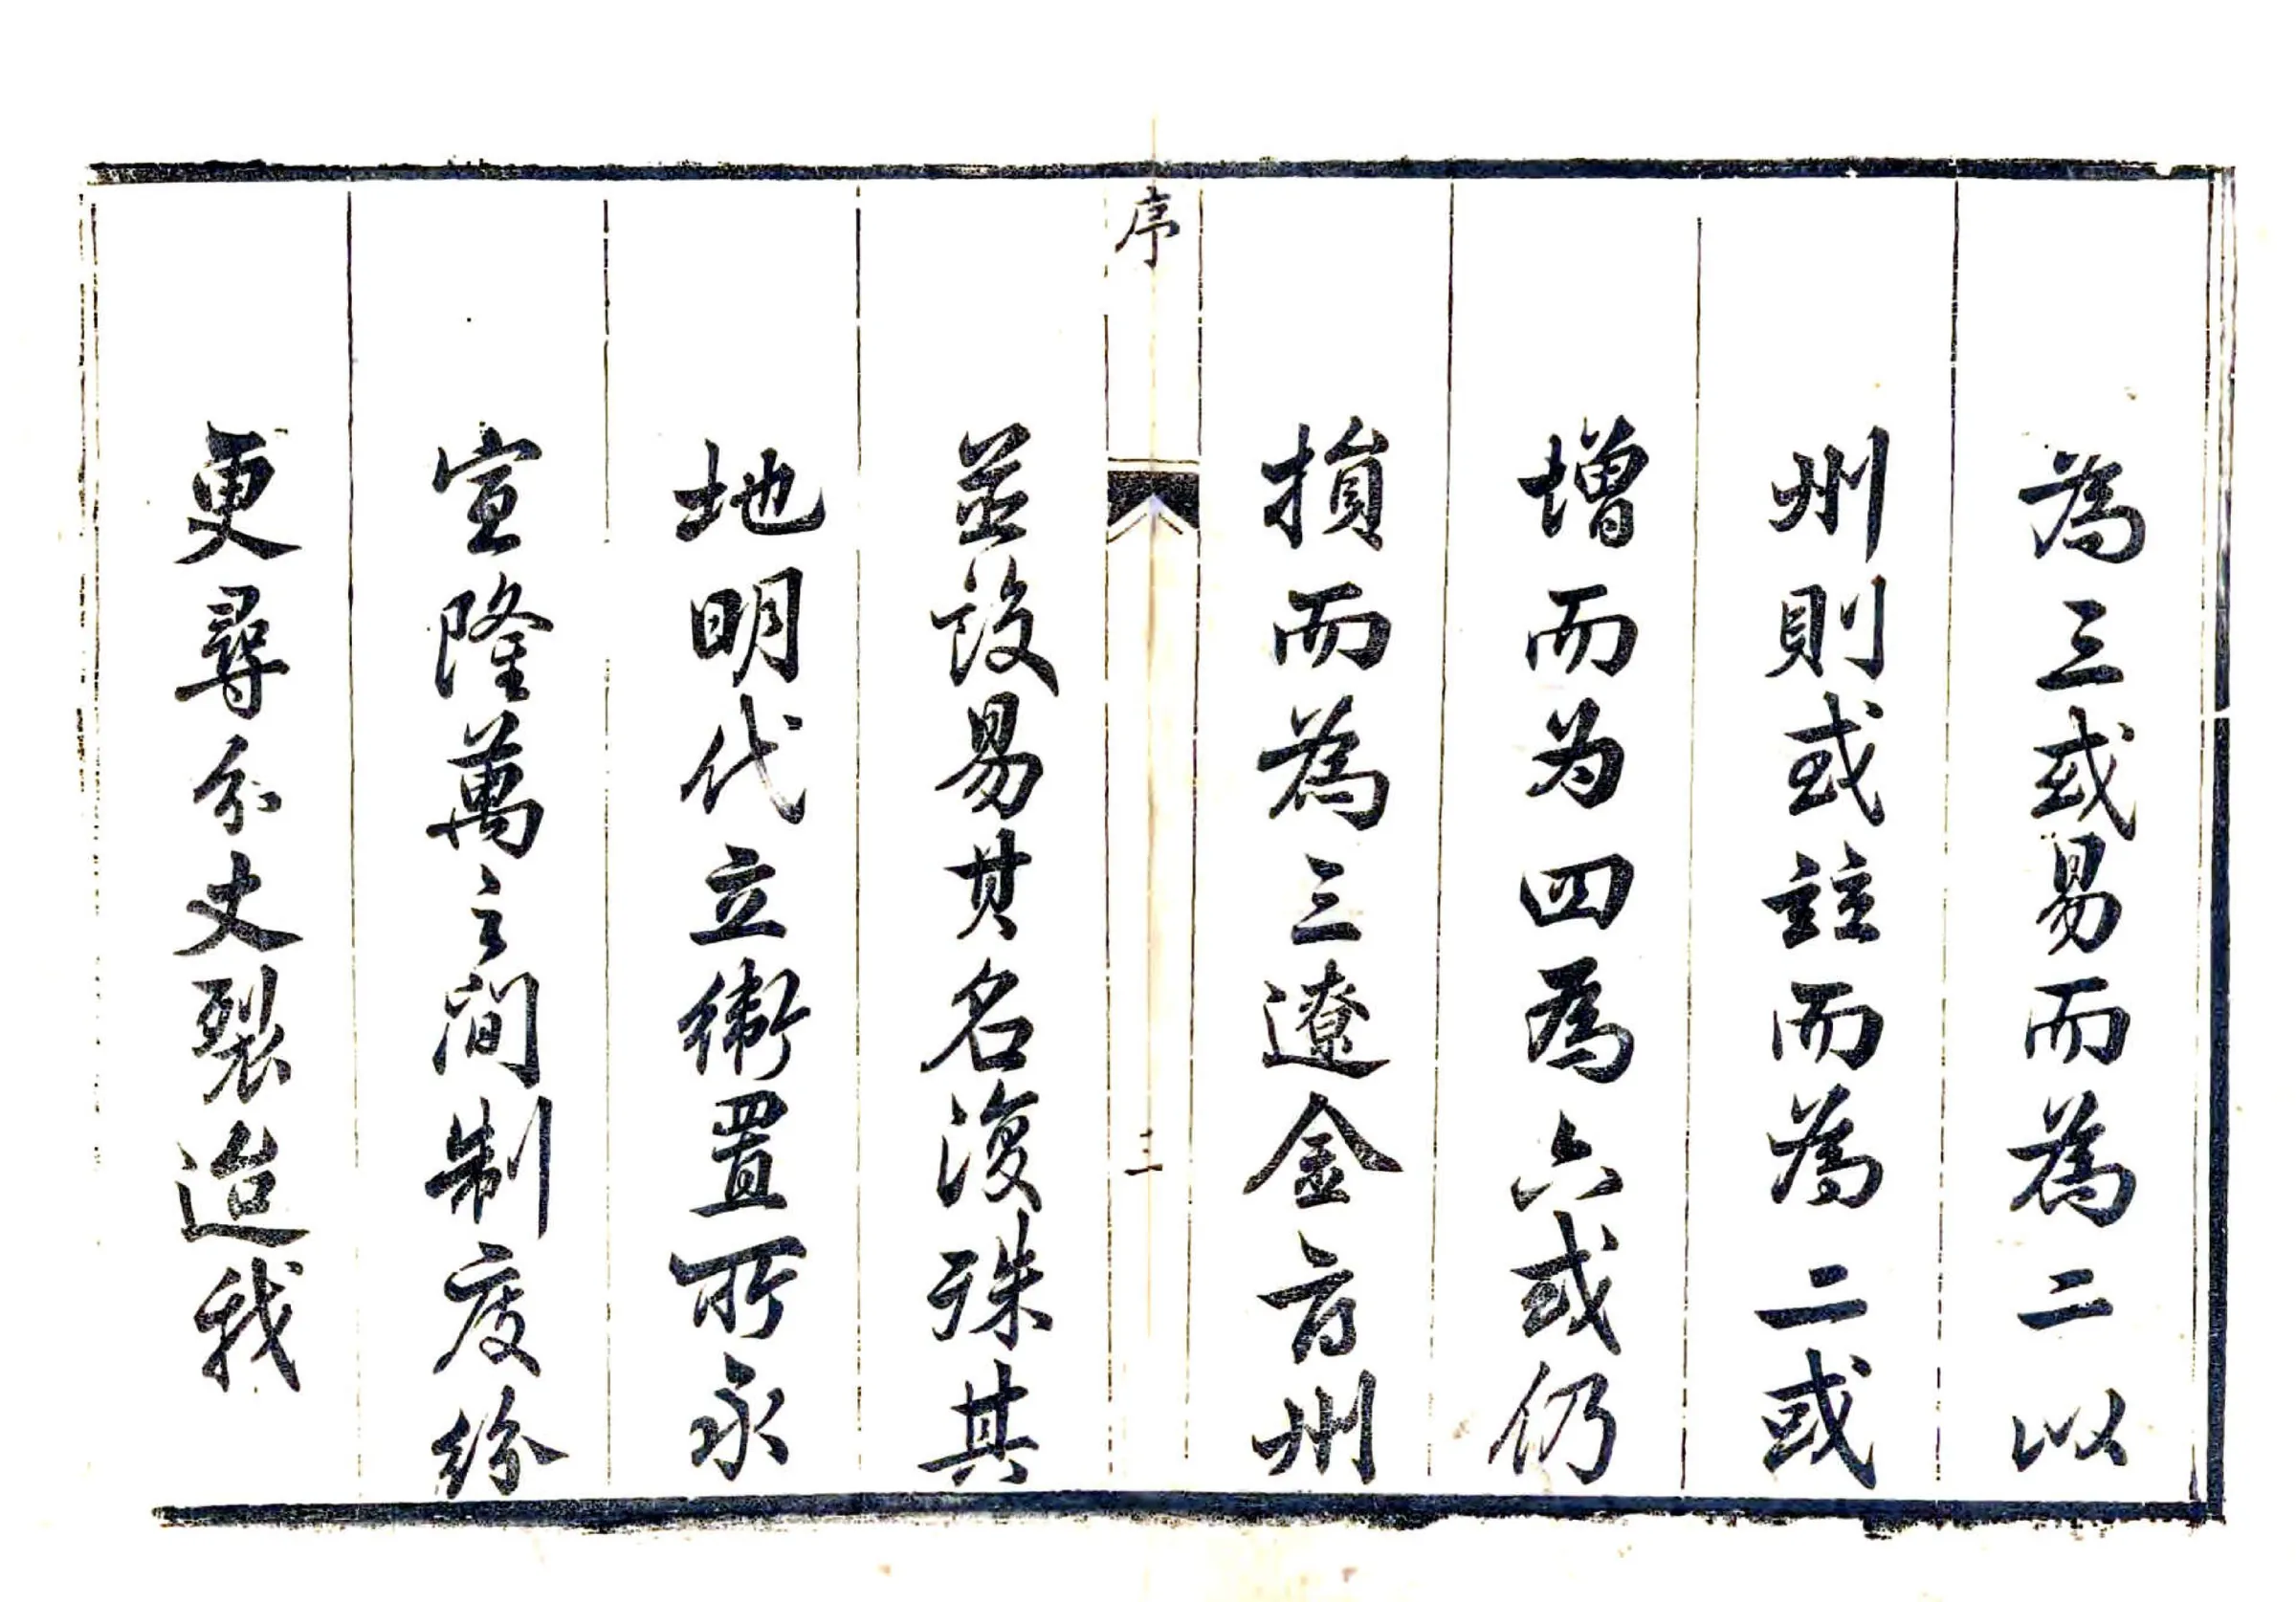 為三或易而為二以
州則或註而為二或
增而为四為六或仍
損而為三遼金州
序
三
並設易其名復殊其
地明代立衛置所永
宣隆萬之間制度紛
更尋分丈裂迨我